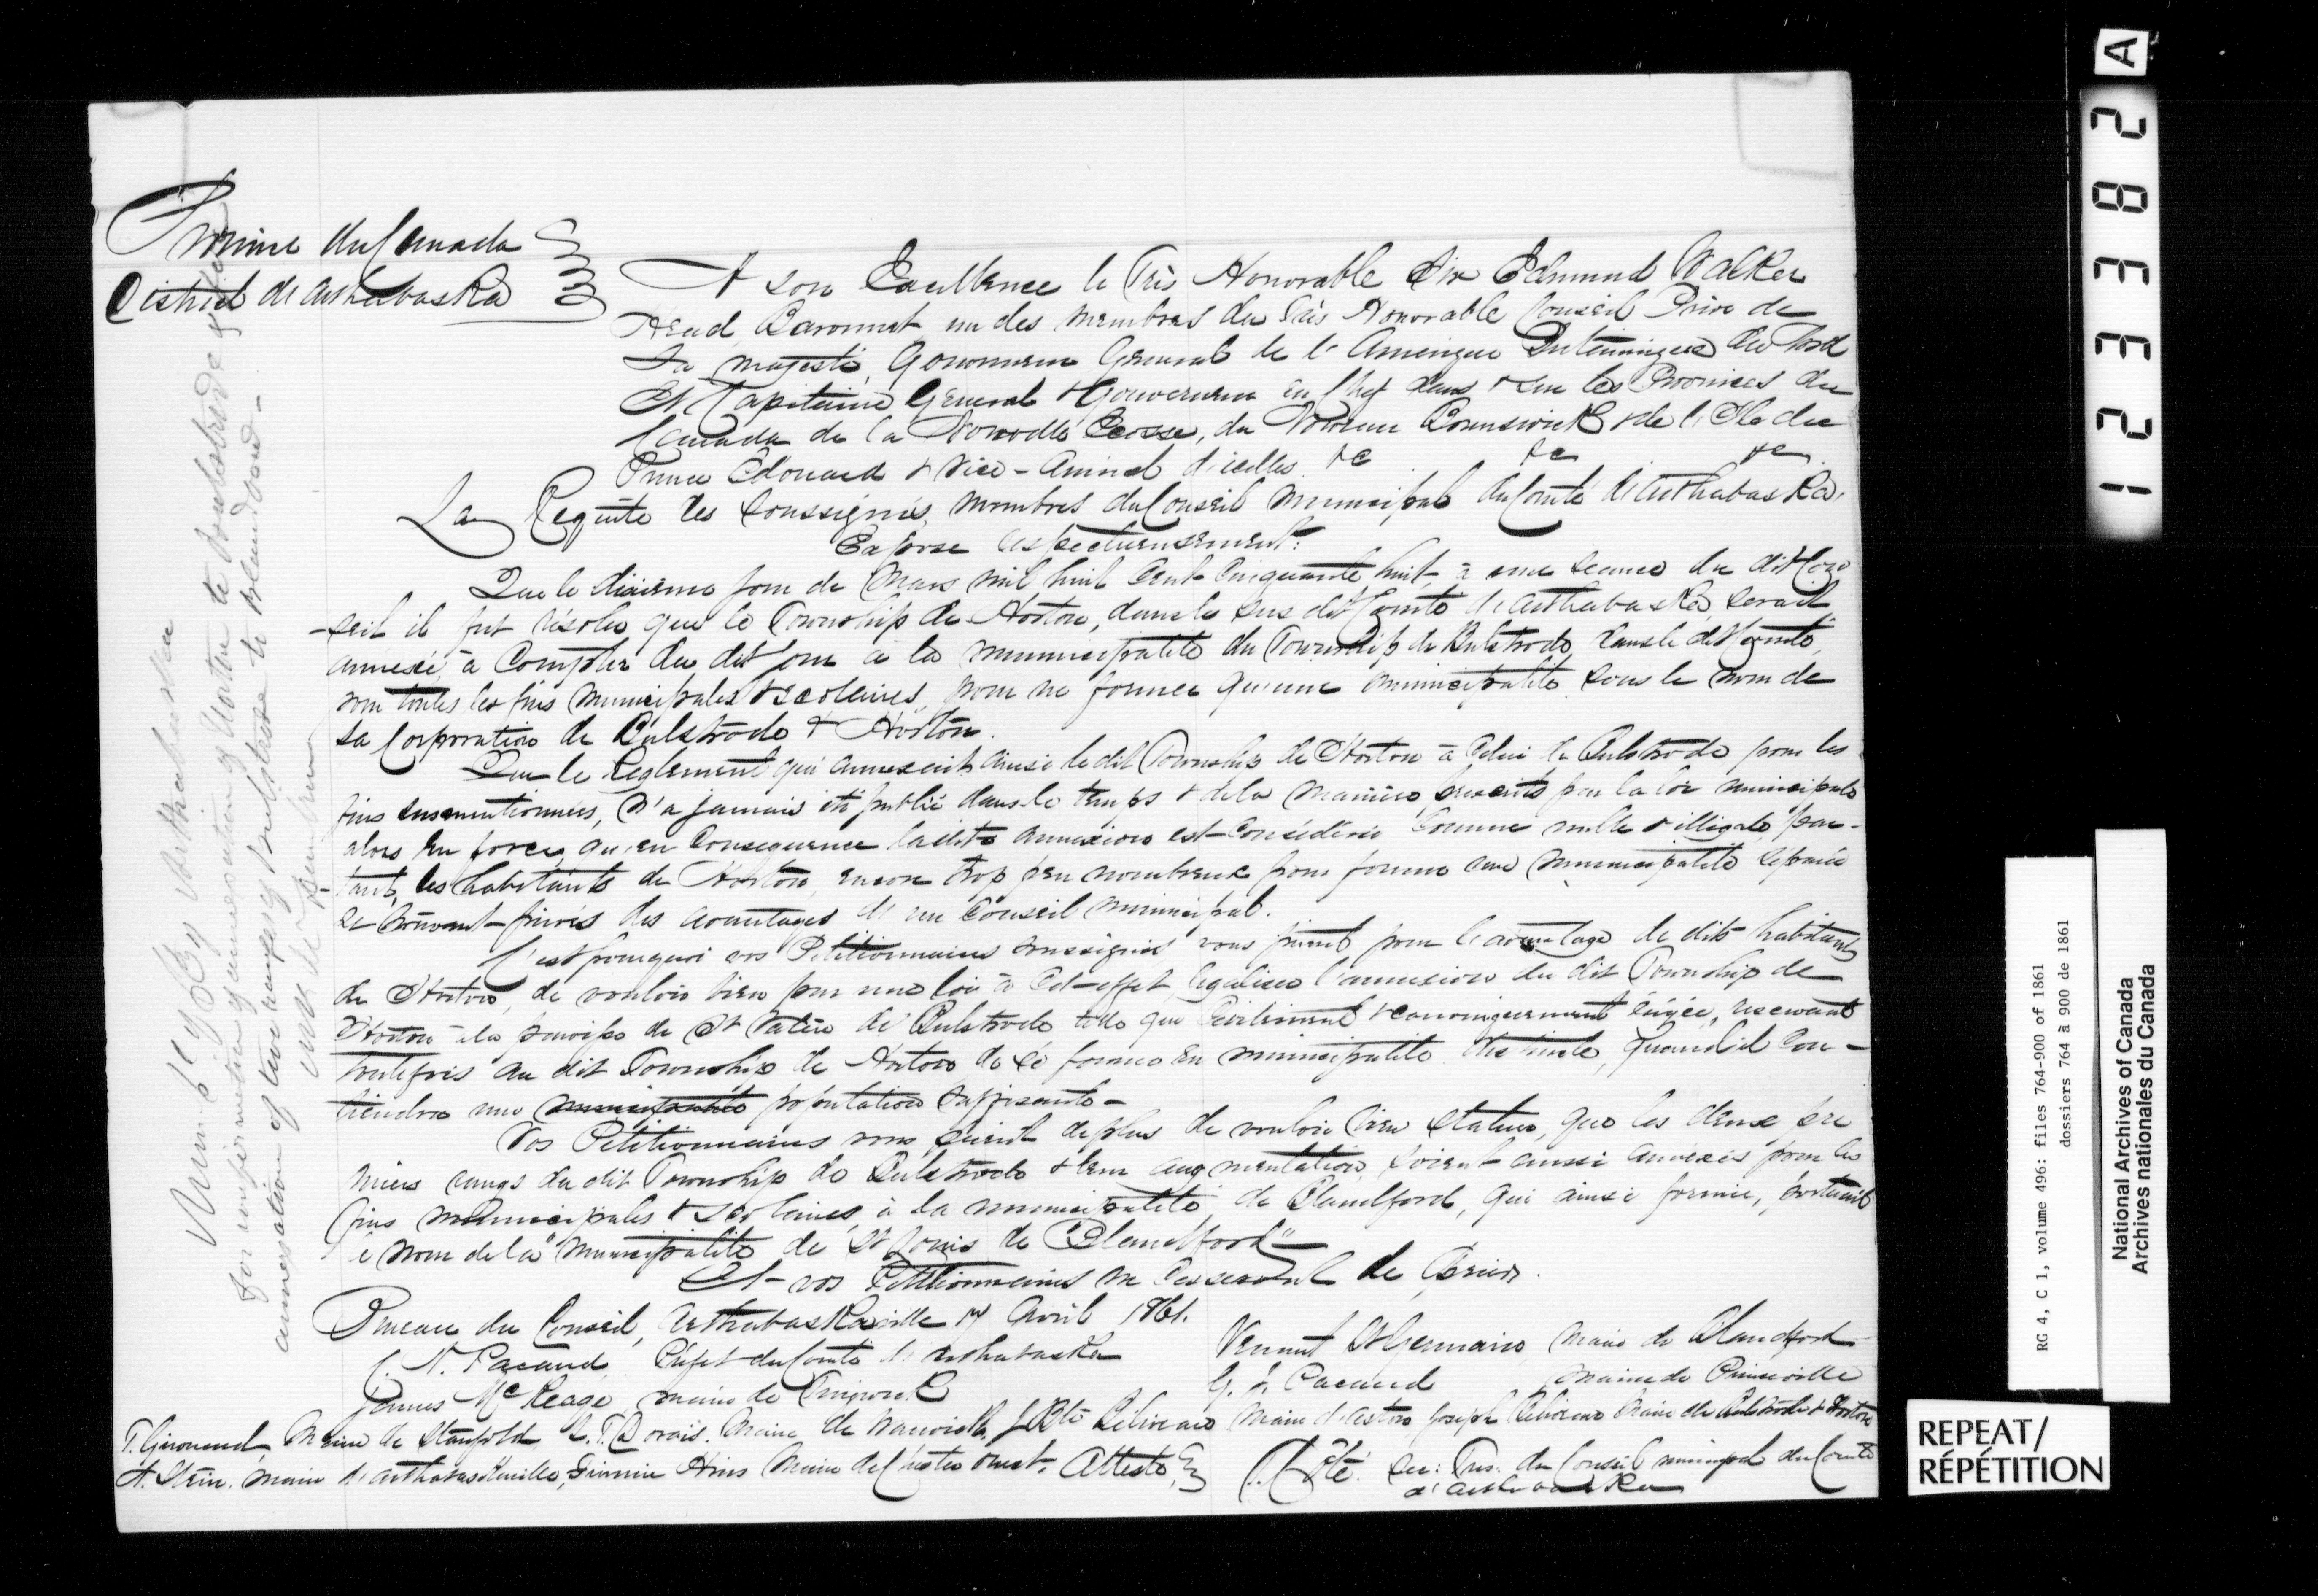 Province du Canada
District de Arthabaska
A Son Excellence le Très Honorable Sir Edmund Walker
Head, Baronnet, un des membres du Très Honorable Conseil Privé de
Sa majesté, Gouverneur Général de l'Amérique Britannique du Nord
Et Capitaine Général & Gouverneur en Chef dans & sur les Provinces du
Canada de la Nouvelle Ecosse, du Nouveau Brunswick & de l'Ile du
Prince Edouard & Vice-Amiral d'icelles. &c &c &c.
La Requête des Soussignés, membres du Conseil municipal du Comté d'Arthabaska,
Expose respectueusement:
Que le dixième jour de Mars mil huit cent cinquante huit, à une séance du dit Con
-seil il fut résolu que le Township de Horton, dans le sus dit Comté d'Arthabaska, serait
annexé, à compter du dit jour à la municipalité du Township de Bulstrode, dans le dit Comté,
pour toutes les fins municipales & scolaires, pour ne former qu'une municipalité sous le nom de
La Corporation de Bulstrode & Horton.
Que le Règlement qui annexait ainsi le dit Township de Horton à celui de Bulstrode pour les
fins susmentionnées, n'a jamais été publié dans le temps & de la manière prescrits par la loi municipale
alors en force, qu'en conséquence la dite annexion est considérée comme nulle & illégale, par-
-tant, les habitants de Horton, encore trop peu nombreux pour former une municipalité séparée
se trouvent privés des avantages d'un Conseil municipal.
C'est pourquoi vos Pétitionnaires soussignés vous prient pour l'avantage de dits habitants
de Horton, de vouloir bien par une loi à cet effet, légaliser l'annexion du dit Township de
Horton à la paroisse de St Valère de Bulstrode telle que civilement & canoniquement érigée, réservant
toutefois au dit Township de Horton de se former en municipalité distincte, quand il con-
tiendra une municipalité population suffisante-
Vos Pétitionnaires vous prient de plus de vouloir bien statuer, que les deux pre
miers rangs du dit Township de Bulstrode & leur augmentation, soient aussi annexés pour les
fins municipales & scolaires, à la municipalité de Blandford, qui ainsi formée, porterait
le nom de la "Municipalité de St Louis de Blandford"
Et vos Pétitionnaires ne cesseront de Prier.
Bureau du Conseil, Arthabaskaville 17 Avril 1861.
C. N. Pacaud, Préfet du Comté d'Arthabaska
Venant St Germain, Maire de Blandford
James McKeage, maire de Tingwick
G. J. Pacaud Maire de Princeville
T. Girouard, Maire de Stanfold L. T. Dorais. Maire de Warwick, J Bte Béliveau Maire d'Aston Joseph Béliveau Maire de Bulstrode & Horton
A. Stein. Maire d'Arthabaskaville, Firmin Hins Maire de Chester Ouest. Attesté,
Côté. Sec: Trés. du Conseil municipal du Comté
d'Arthabaska
Municipy of Arthabaska
for confirmation of annexation of Horton to Bulstrode &
annexation of two ranges of Bulstrode to Blandford-
12338 2 A
RG 4, C 1, volume 496: files 764-900 of 1861
dossiers 764 à 900 de 1861
National Archives of Canada
Archives nationales du Canada
REPEAT/
RÉPÉTITION